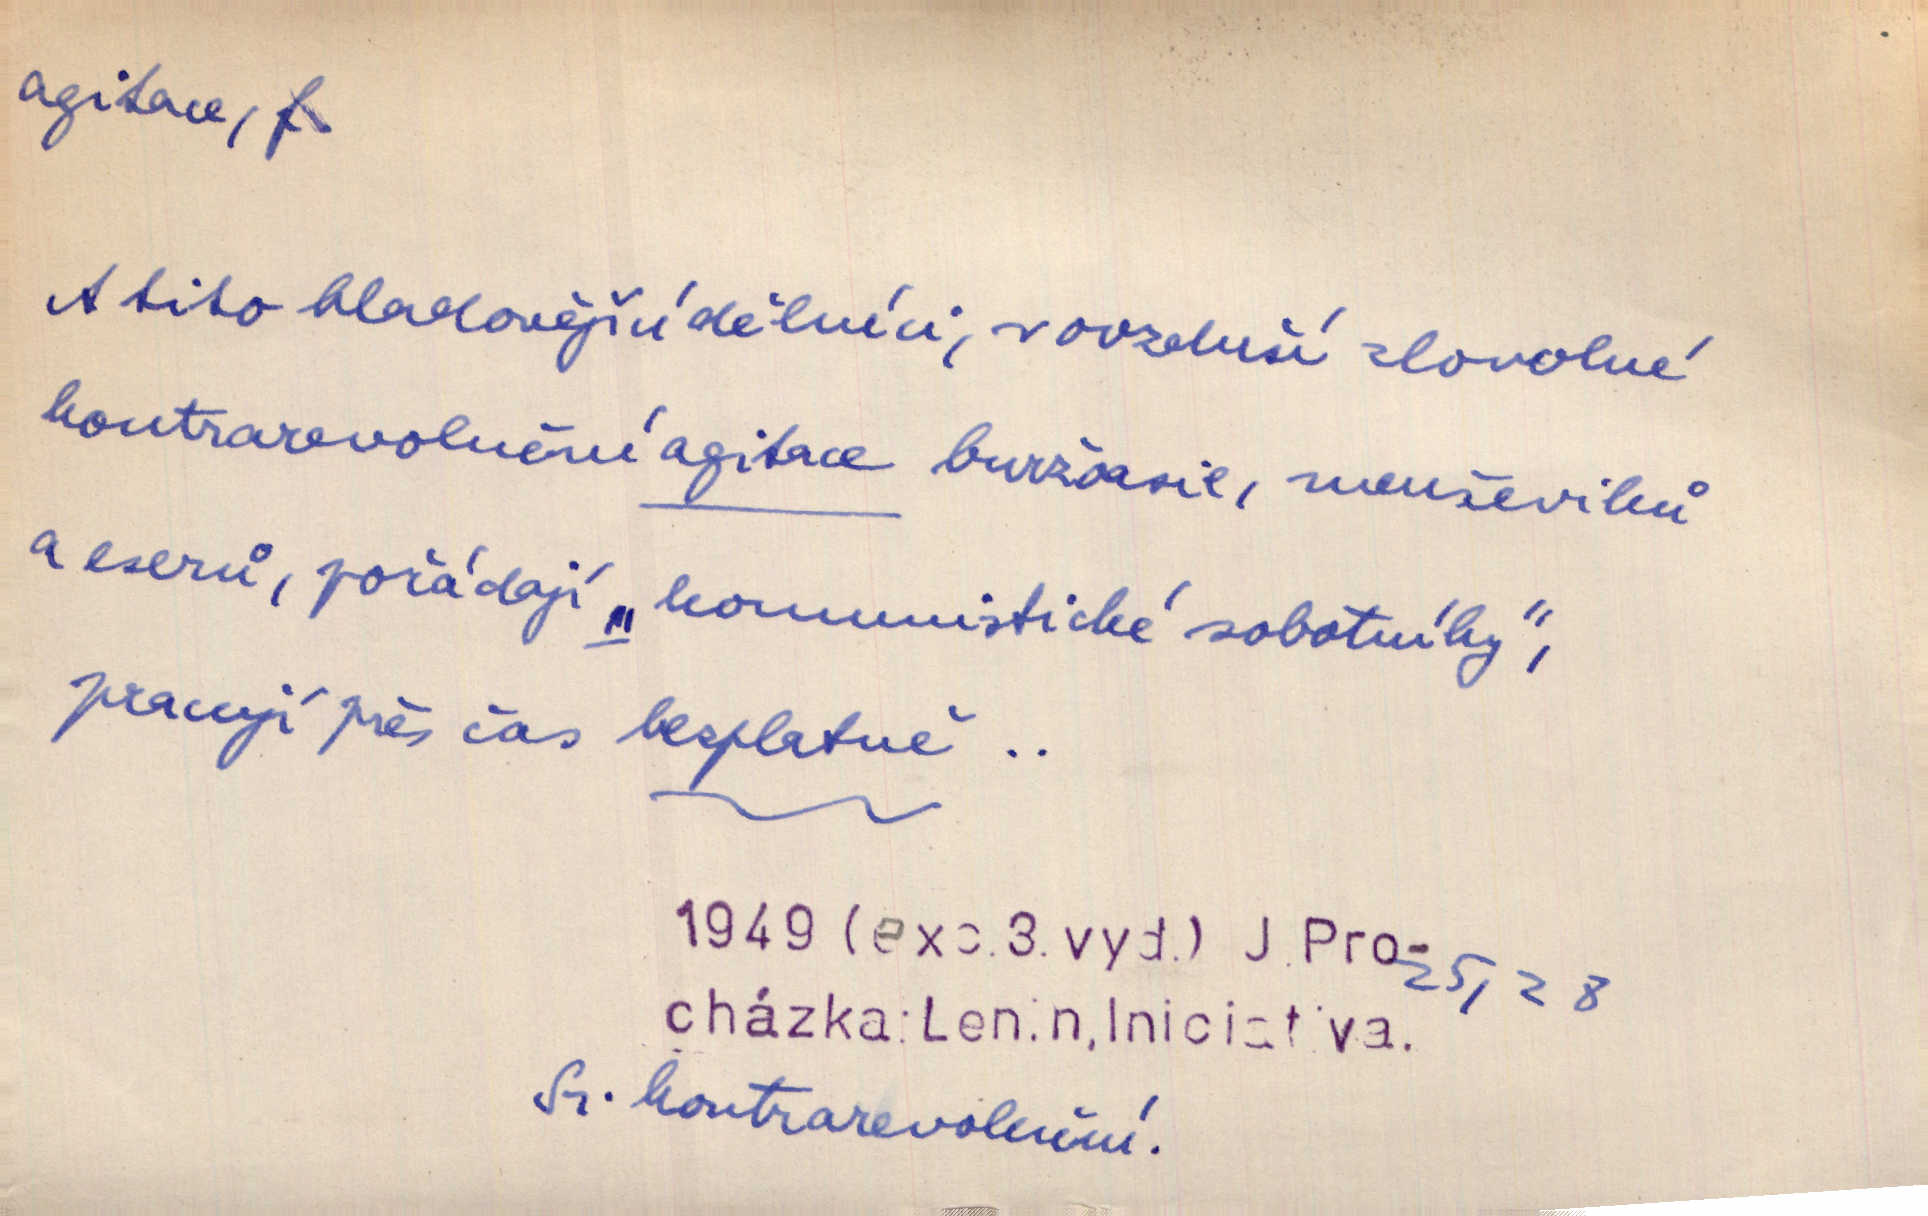 agitace, f.
A tito hladovějící dělníci, v ovzduší zlovolné
kontrarevoluční agitace buržoasie, menševiků
a eserů, pořádají „komunistické sobotníky",
pracují přes čas bezplatně ..
1949 (exc. 3. vyd.) J. Pro-
cházka: Lenin, Iniciativa. 25, 28
Sr. kontrarevoluční.